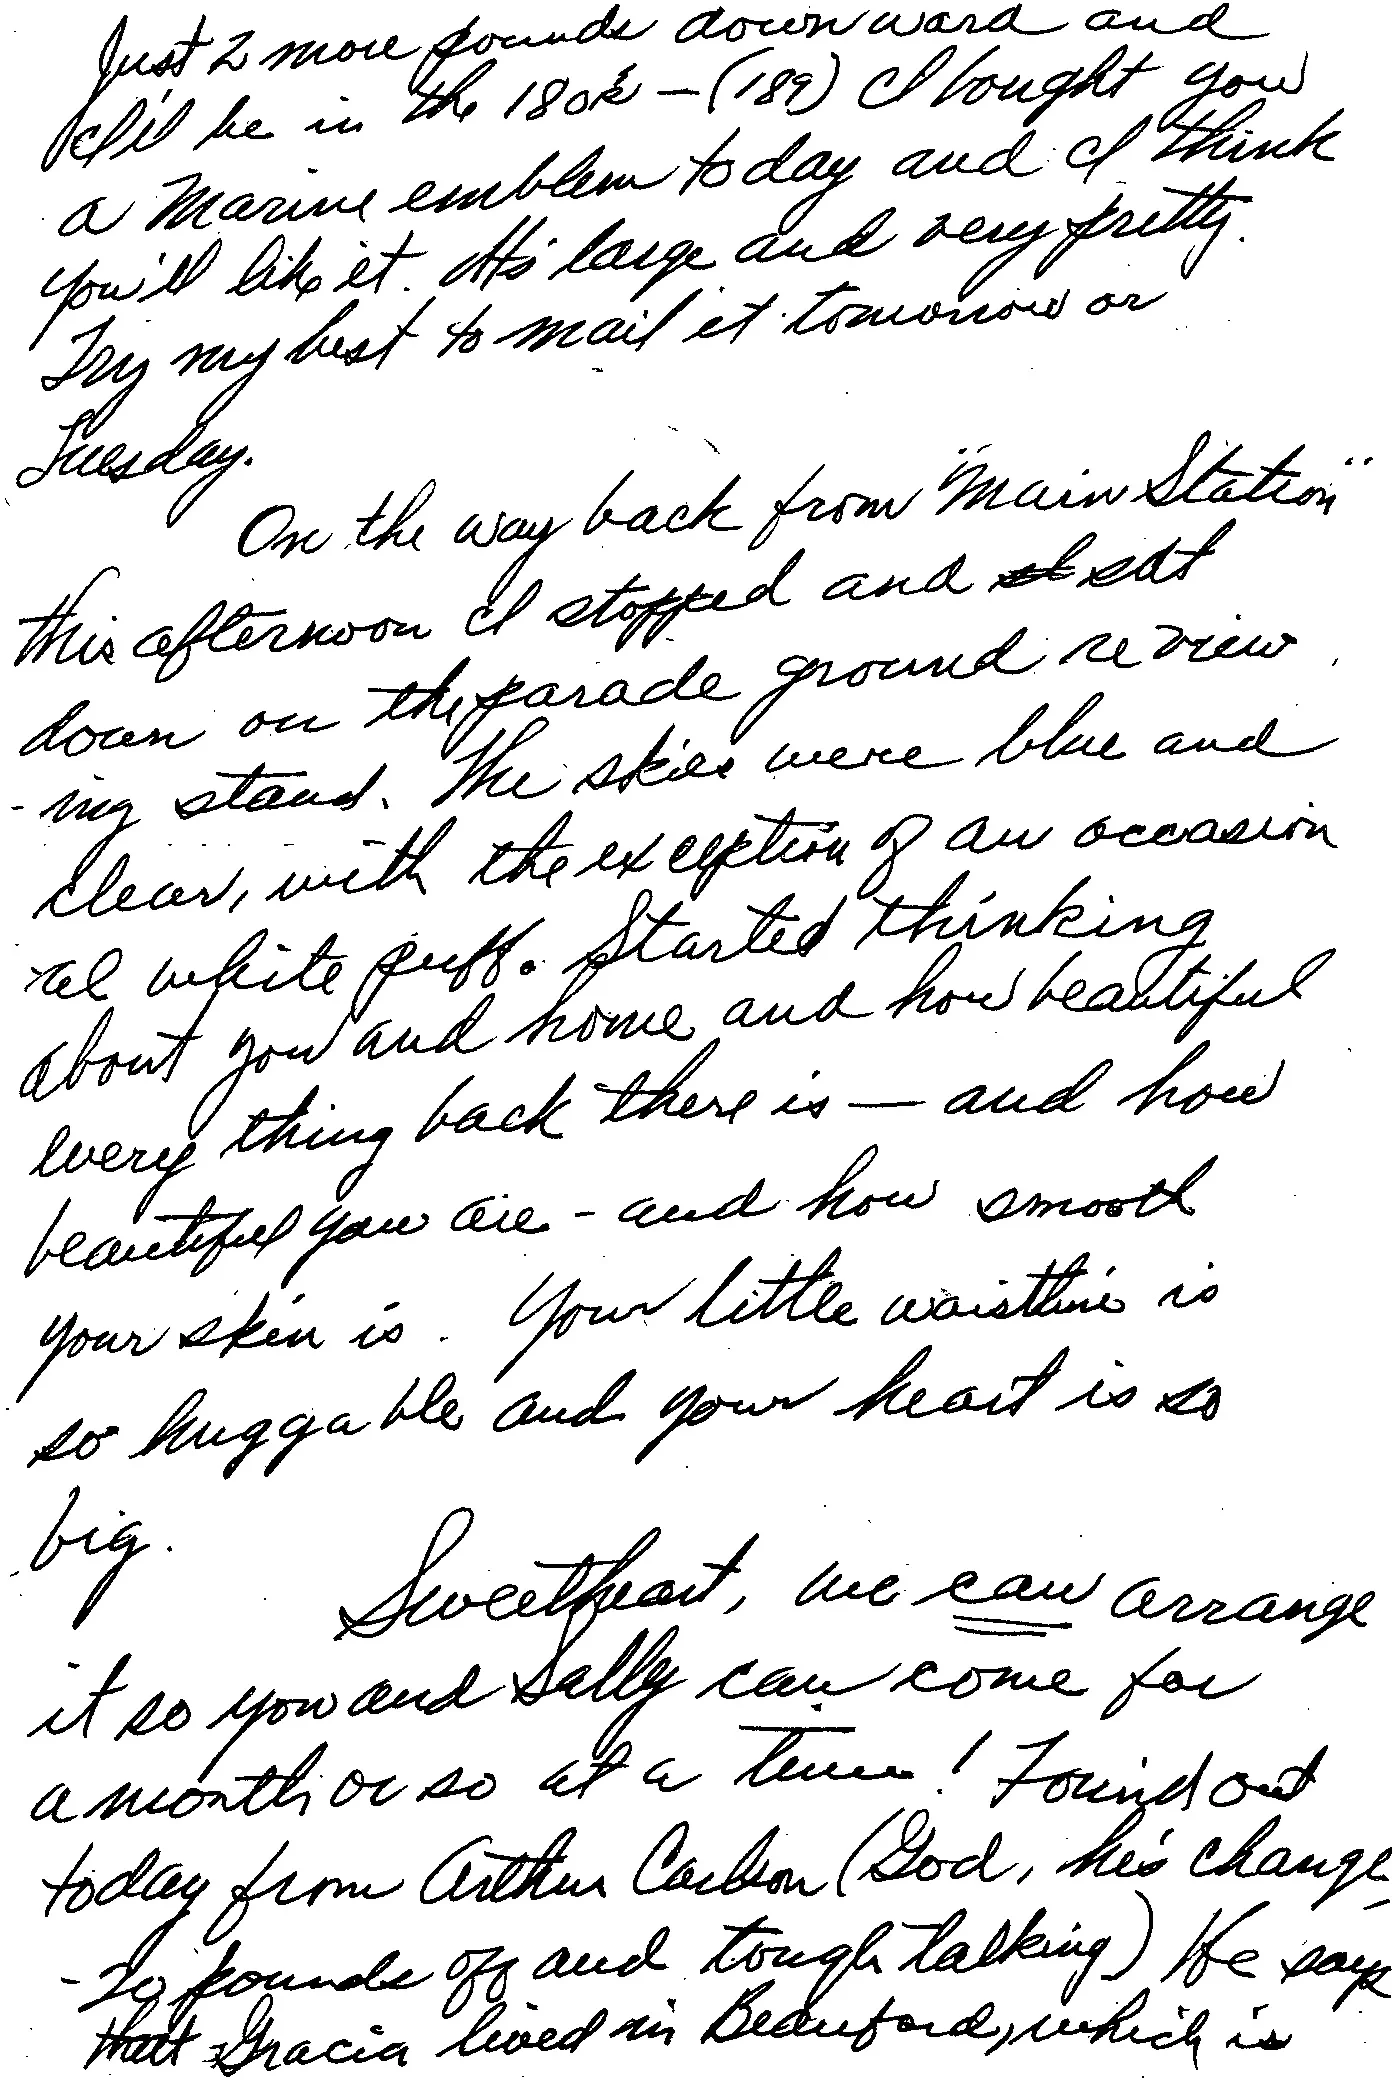 Just 2 more pounds downward and
I'll be in the 180's – (189) I bought you
a Marine emblem today and I think
you'll like it. It's large and very pretty.
Try my best to mail it tomorrow or
Tuesday.
On the way back from "Main Station"
this afternoon I stopped and sat
down on the parade ground review
-ing stand. The skies were blue and
clear, with the exception of an occasion
-al white puff. Started thinking
about you and home and how beautiful
every thing back there is — and how
beautiful you are - and how smooth
your skin is. Your little waistline is
so huggable and your heart is so
big.
Sweetheart, we can arrange
it so you and Sally can come for
a month or so at a time! Found out
today from Arthur (God, he's change
- 20 pounds off and tough talking) He says
that Gracia lived in Beauford, which is